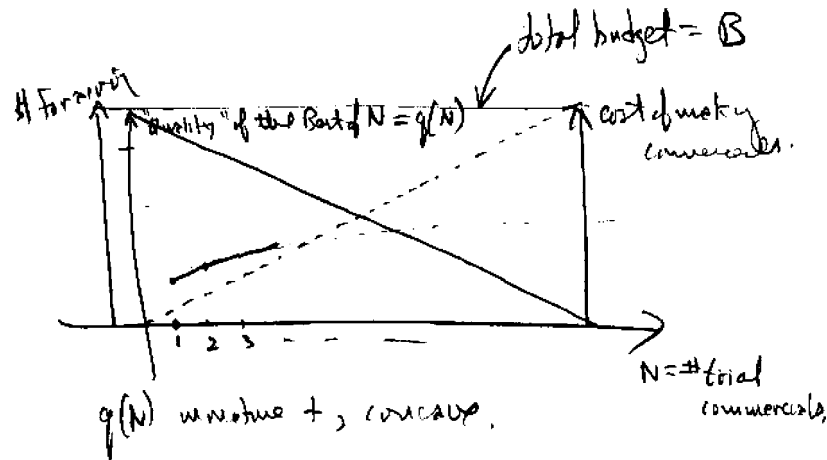 total budget = B
$ for
"Quality" of the Best of N = q(N)
cost of making
commercials.
1 2 3 - - —
N = # trial
commercials,
q(N) monotone +, concave.